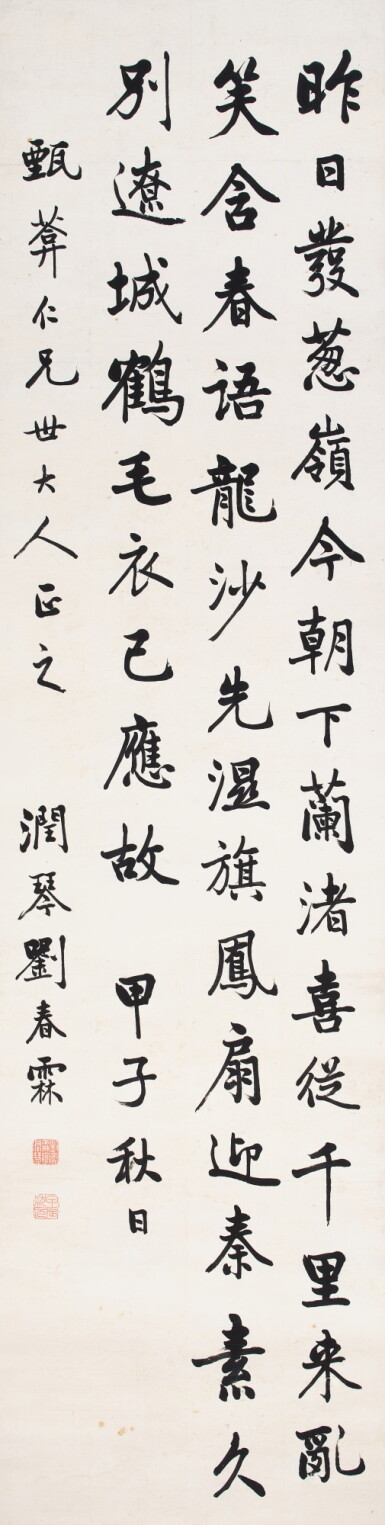 昨日發葱嶺今朝下蘭渚喜從千里来亂
笑含春語龍沙先濕旗鳳扇迎秦素久
別遼城鶴毛衣已應故 甲子秋日
甄葊仁兄世大人正之 潤琴劉春霖